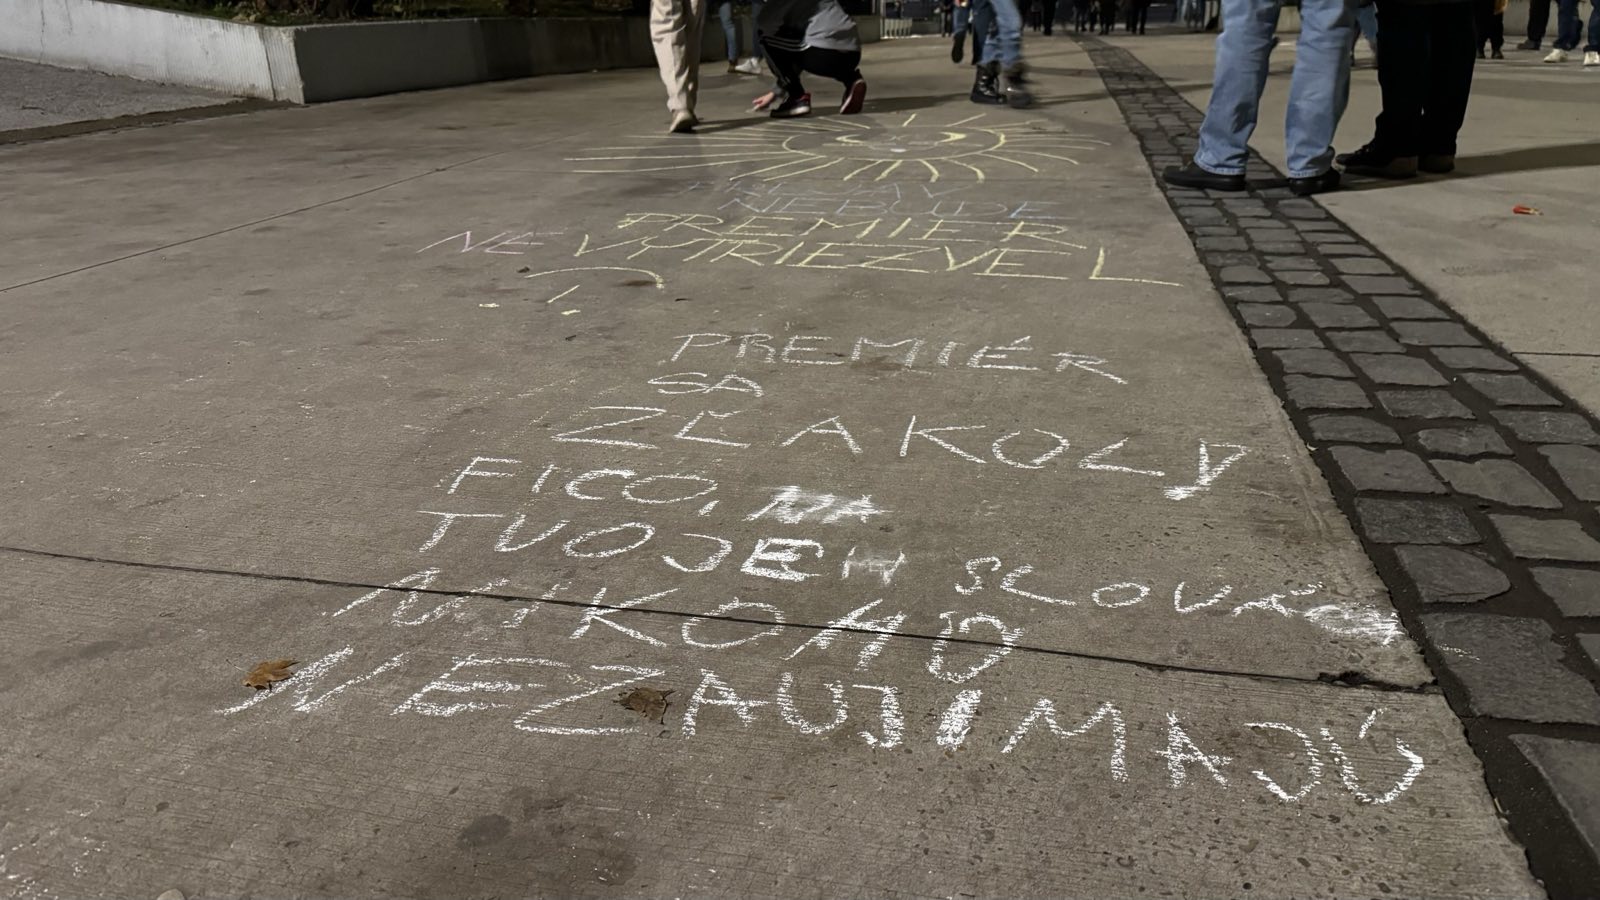 PREJAV
NEBUDE
PREMIER
NEVYTRIEZVEL
PREMIÉR
SA
ZĽAKOL
FICO,
TVOJE SLOVÁ
NIKOHO
NEZAUJIMAJÚ